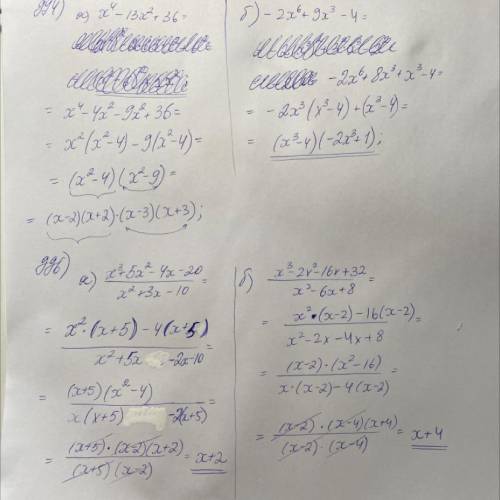 994) а) x⁴-13x²+36=
= x⁴-4x²-9x²+36=
= x²(x²-4)-9(x²-4)=
= (x²-4)(x²-9)=
= (x-2)(x+2)·(x-3)(x+3);
б) -2x⁶+9x³-4=
-2x⁶+8x³+x³-4=
= -2x³(x³-4)+(x³-4)=
= (x³-4)(-2x³+1);
996) а) x³+5x²-4x-20 / x²+3x-10 =
= x²·(x+5)-4(x+5) / x²+5x -2x-10 =
= (x+5)(x²-4) / x(x+5) -2(x+5) =
= (x+5)·(x-2)(x+2) / (x+5)(x-2) = x+2
б) x³-2x²-16x+32 / x²-6x+8 =
= x²·(x-2)-16(x-2) / x²-2x-4x+8 =
= (x-2)·(x²-16) / x·(x-2)-4(x-2) =
= (x-2)·(x-4)(x+4) / (x-2)·(x-4) = x+4